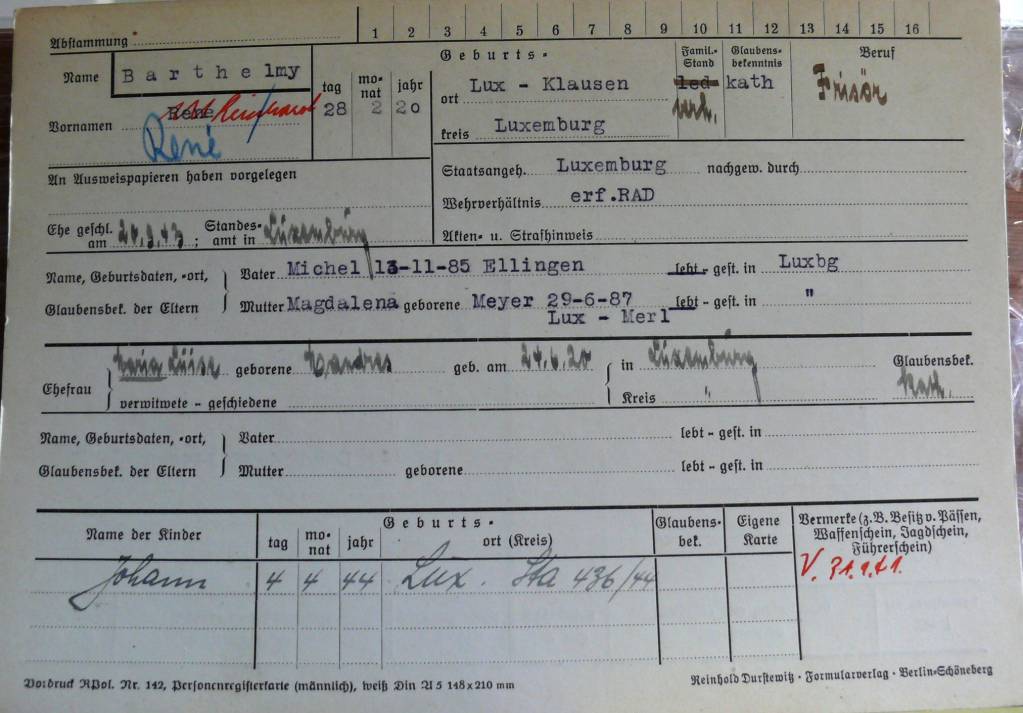 Abstammung
1 2 3 4 5 6 7 8 9 10 11 12 13 14 15 16
Name Barthelmy
Vornamen René Reinhard
René
tag monat jahr
28 2 20
Geburts-
ort Lux - Klausen
kreis Luxemburg
Famil.-Stand
led
verh.
Glaubensbekenntnis
kath
Beruf
Frisör
An Ausweispapieren haben vorgelegen
Staatsangeh. Luxemburg nachgew. durch
Wehrverhältnis erf.RAD
Akten- u. Strafhinweis
Ehe geschl. am 24.3.43; Standesamt in Luxemburg
Name, Geburtsdaten, -ort, Glaubensbek. der Eltern
Vater Michel 13-11-85 Ellingen lebt - gest. in Luxbg
Mutter Magdalena geborene Meyer 29-6-87 lebt - gest. in "
Lux - Merl
Ehefrau Maria Luise geborene geb. am 24.6.20 in Luxemburg Glaubensbek.
verwitwete - geschiedene Kreis " kath.
Name, Geburtsdaten, -ort, Glaubensbek. der Eltern
Vater lebt - gest. in
Mutter geborene lebt - gest. in
Name der Kinder
tag monat jahr
Geburts-
ort (Kreis)
Glaubensbek.
Eigene Karte
Vermerke (z.B. Besitz v. Pässen,
Waffenschein, Jagdschein,
Führerschein)
V. 31.1.41.
Johann 4 4 44 Lux. Sta 436/44
Vordruck RPol. Nr. 142, Personenregisterkarte (männlich), weiß Din A 5 148 x 210 mm
Reinhold Durstewitz · Formularverlag · Berlin-Schöneberg